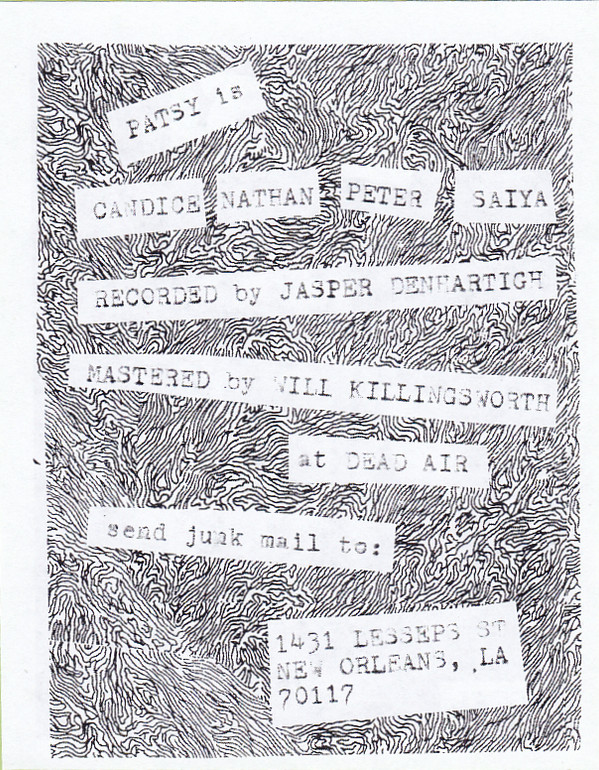 PATSY is
CANDICE NATHAN PETER SAIYA
RECORDED by JASPER DENHARTIGH
MASTERED by WILL KILLINGSWORTH
at DEAD AIR
send junk mail to:
1431 LESSEPS ST
NEW ORLEANS, LA
70117